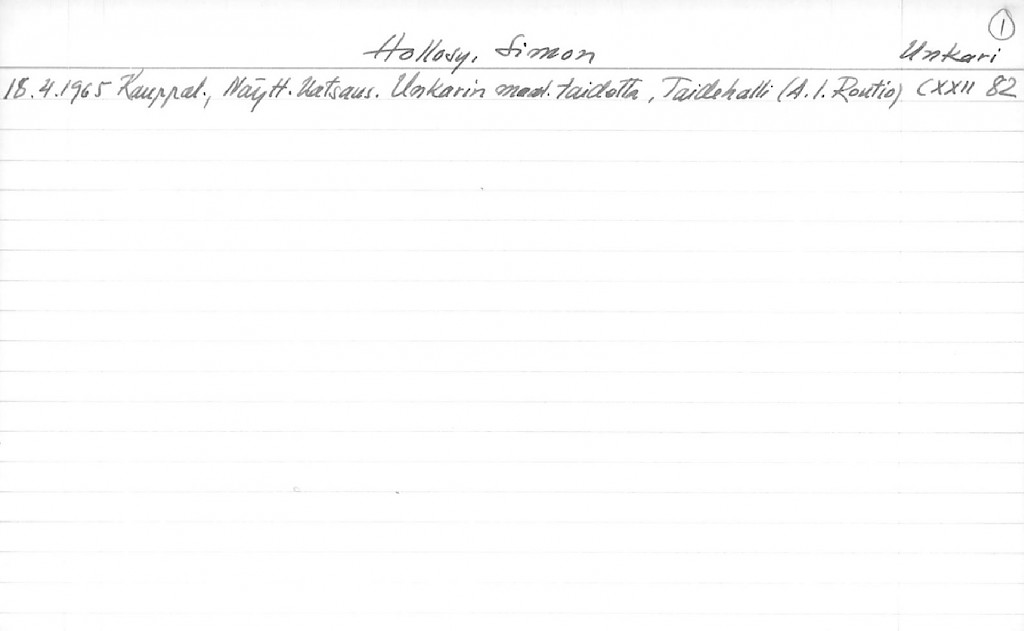 1
Hollosy, Simon Unkari
18.4.1965 Kauppal., Näytt. katsaus. Unkarin maal. taidetta, Taidehalli (A. I. Routio) CXXII 82